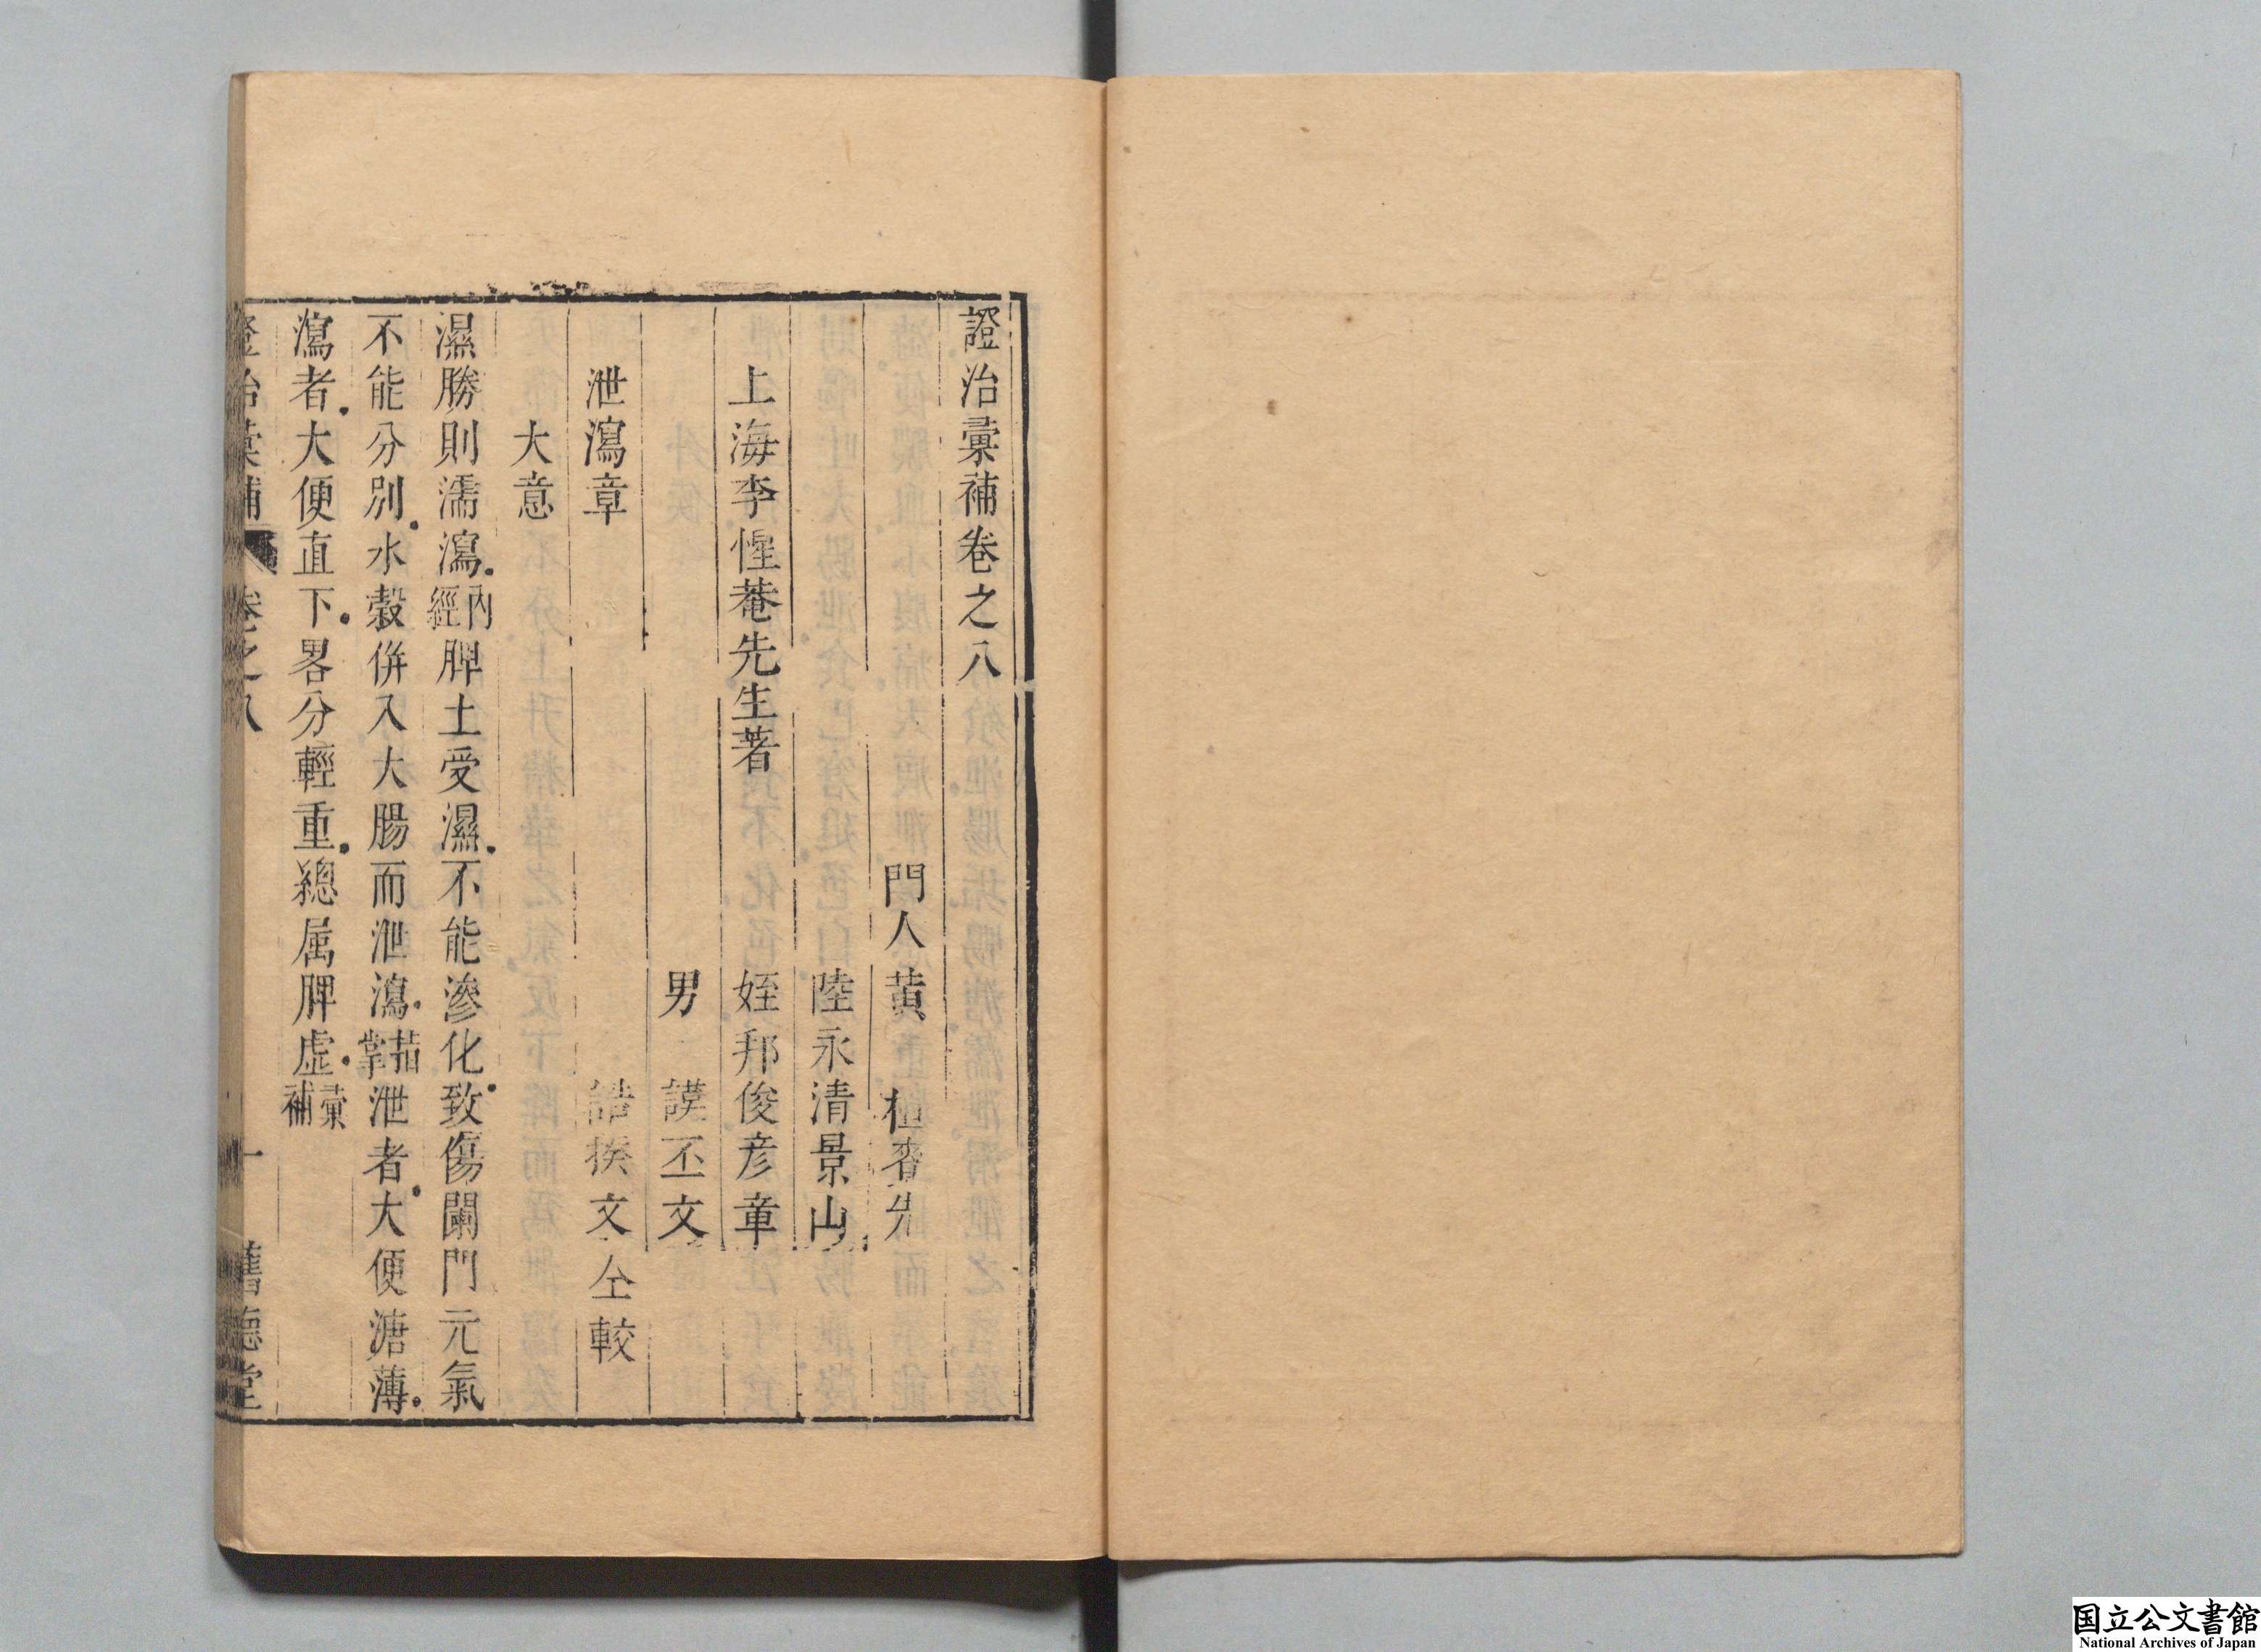 證治彙補卷之八
門人黃
陸永清景山
上海李惺菴先生著
姪邦俊彥章
男
謨丕文
泄瀉章
誥揆文仝較
大意
濕勝則濡瀉內經脾土受濕不能滲化致傷闌門元氣
不能分別水穀併入大腸而泄瀉指掌泄者大便溏薄
瀉者大便直下畧分輕重總屬脾虛彙補
證治彙補
卷之八
一
舊德堂
国立公文書館
National Archives of Japan